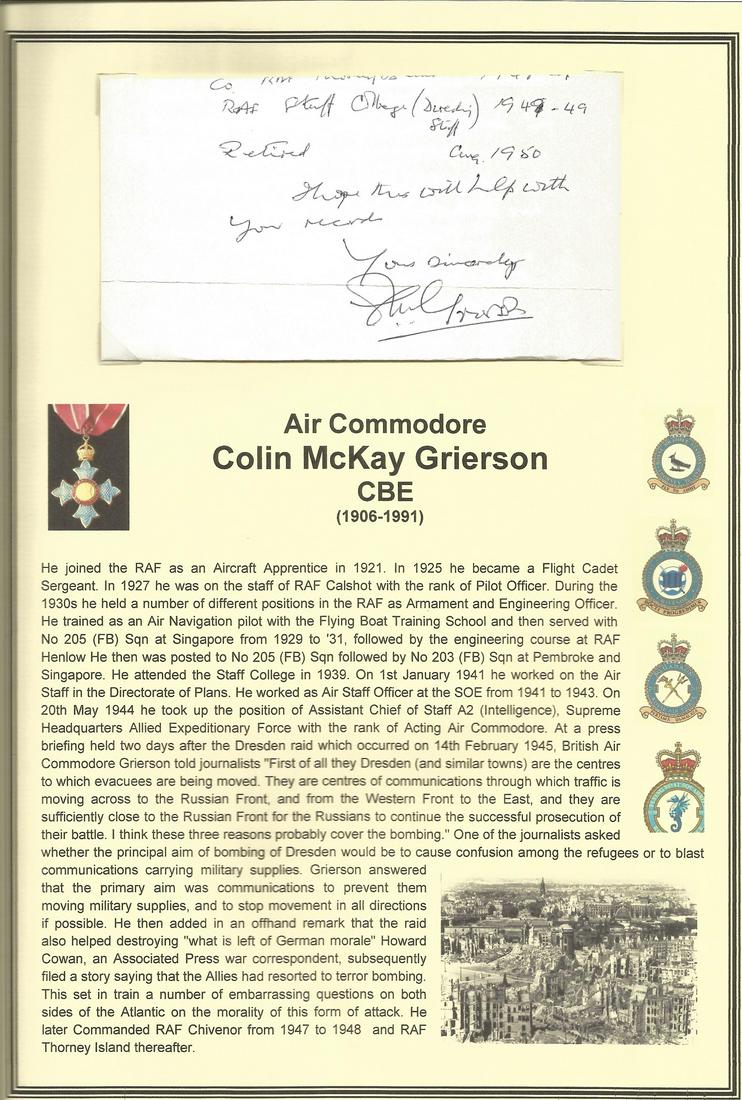 Co. RAF
RAF Staff College (Directing Staff) 1949 - 49
Retired Aug. 1950
I hope this will help with
your records
Yours sincerely
Air Commodore
Colin McKay Grierson
CBE
(1906-1991)
He joined the RAF as an Aircraft Apprentice in 1921. In 1925 he became a Flight Cadet
Sergeant. In 1927 he was on the staff of RAF Calshot with the rank of Pilot Officer. During the
1930s he held a number of different positions in the RAF as Armament and Engineering Officer.
He trained as an Air Navigation pilot with the Flying Boat Training School and then served with
No 205 (FB) Sqn at Singapore from 1929 to '31, followed by the engineering course at RAF
Henlow He then was posted to No 205 (FB) Sqn followed by No 203 (FB) Sqn at Pembroke and
Singapore. He attended the Staff College in 1939. On 1st January 1941 he worked on the Air
Staff in the Directorate of Plans. He worked as Air Staff Officer at the SOE from 1941 to 1943. On
20th May 1944 he took up the position of Assistant Chief of Staff A2 (Intelligence), Supreme
Headquarters Allied Expeditionary Force with the rank of Acting Air Commodore. At a press
briefing held two days after the Dresden raid which occurred on 14th February 1945, British Air
Commodore Grierson told journalists "First of all they Dresden (and similar towns) are the centres
to which evacuees are being moved. They are centres of communications through which traffic is
moving across to the Russian Front, and from the Western Front to the East, and they are
sufficiently close to the Russian Front for the Russians to continue the successful prosecution of
their battle. I think these three reasons probably cover the bombing." One of the journalists asked
whether the principal aim of bombing of Dresden would be to cause confusion among the refugees or to blast
communications carrying military supplies. Grierson answered
that the primary aim was communications to prevent them
moving military supplies, and to stop movement in all directions
if possible. He then added in an offhand remark that the raid
also helped destroying "what is left of German morale" Howard
Cowan, an Associated Press war correspondent, subsequently
filed a story saying that the Allies had resorted to terror bombing.
This set in train a number of embarrassing questions on both
sides of the Atlantic on the morality of this form of attack. He
later Commanded RAF Chivenor from 1947 to 1948 and RAF
Thorney Island thereafter.